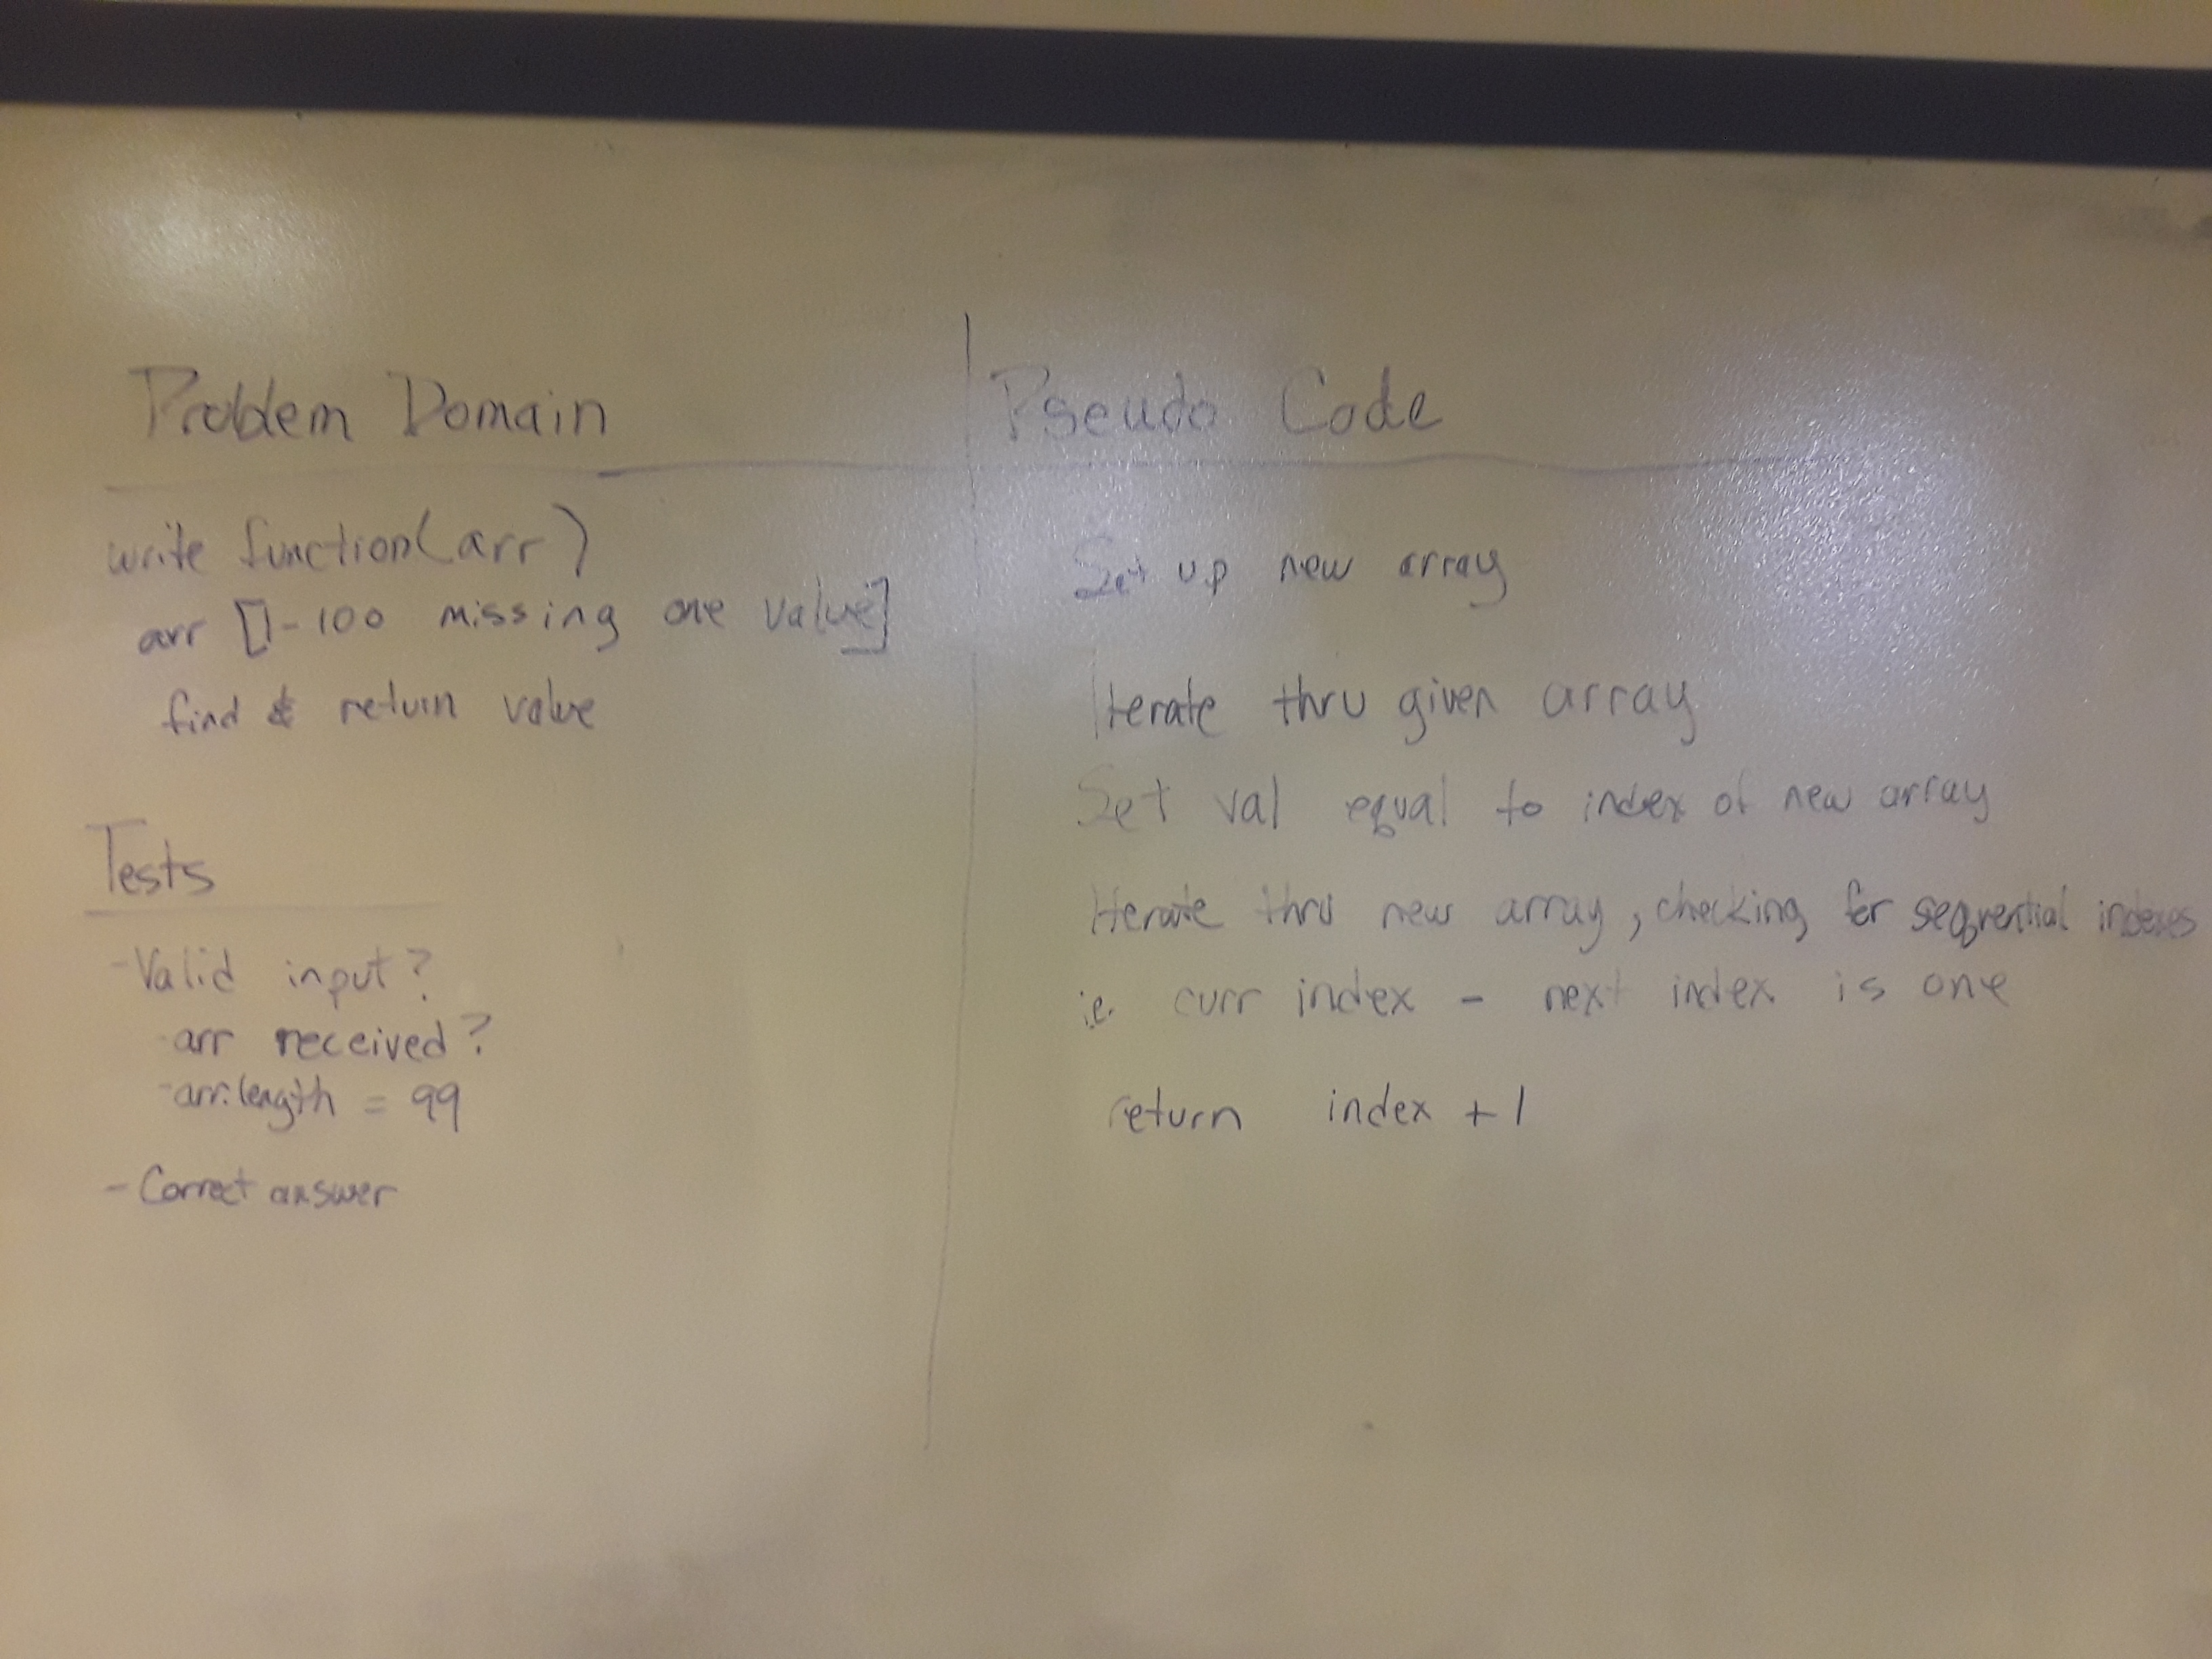 Problem Domain
write function(arr)
arr [1-100 missing one value]
find & return value
Tests
- Valid input?
- arr received?
- arr.length = 99
- Correct answer
Pseudo Code
Set up new array
Iterate thru given array
Set val equal to index of new array
Iterate thru new array, checking for sequential indexes
i.e. curr index - next index is one
return index + 1